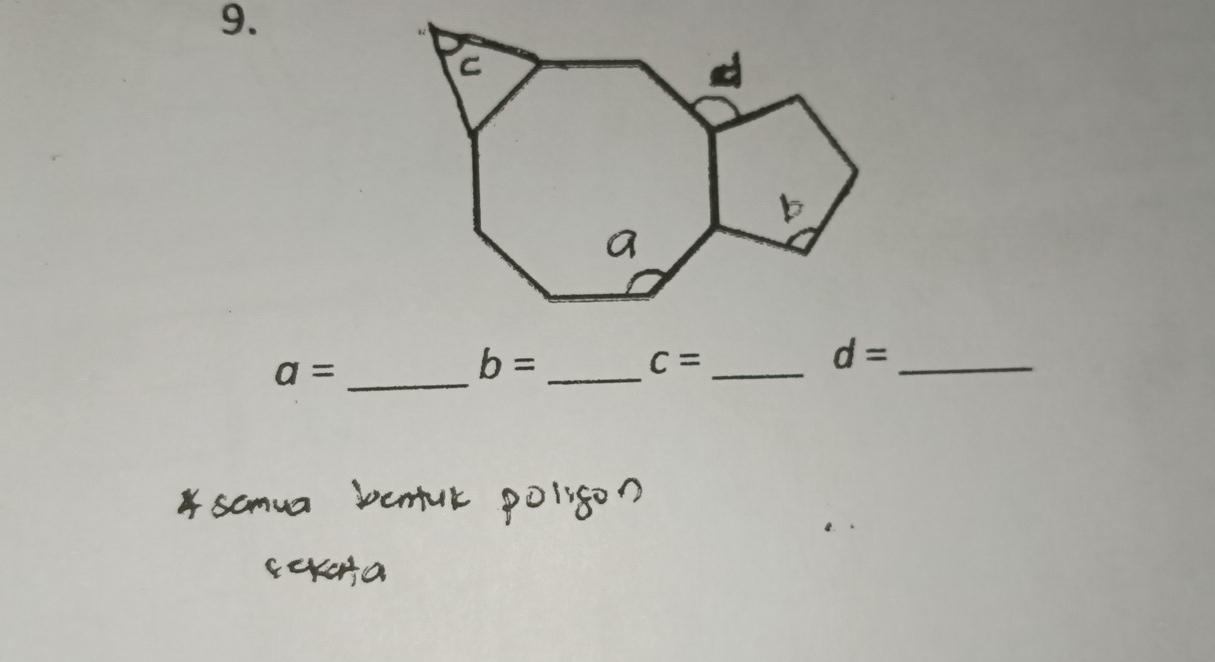 9.
c
d
b
a
a = ______ b = _____ c = _____ d = _______
* semua bentuk poligon
sekata